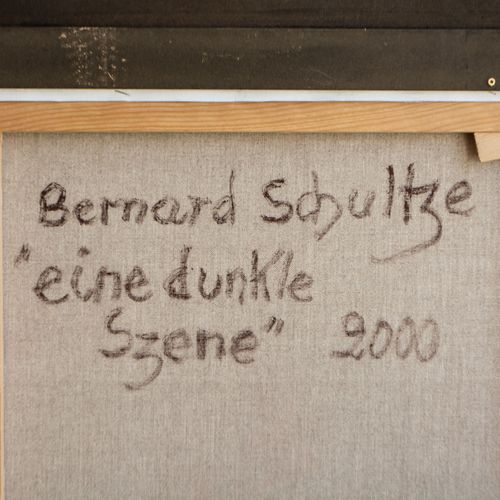 Bernard Schultze
"eine dunkle
Szene" 2000